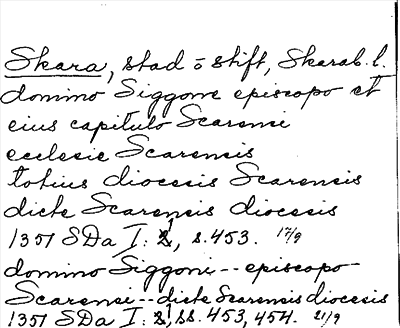 Skara, stad o stift, Skarab. l.
domino Siggone episcopo et
eius capitulo Scarensi
ecclesie Scarensis
totius diocesis Scarensis
dicte Scarensis diocesis
1351 SDa I: s. 453. 17/9
domino Siggoni -- episcopo
Scarensi -- dicte Scarensis diocesis
1351 SDa I: ss. 453, 454. 21/9